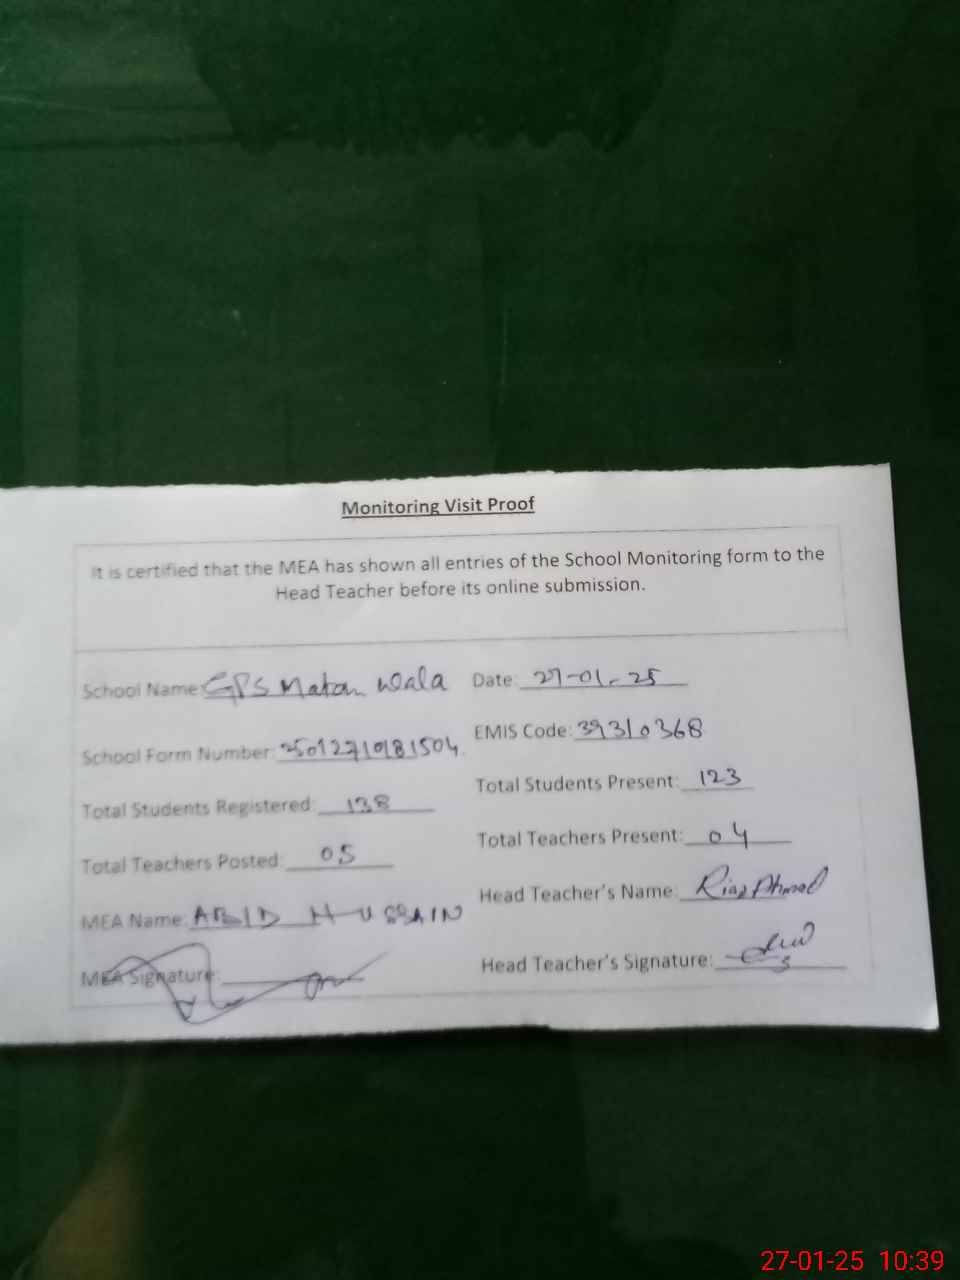 Monitoring Visit Proof
It is certified that the MEA has shown all entries of the School Monitoring form to the
Head Teacher before its online submission.
School Name: GPS Matan Wala Date: 27-01-25
School Form Number: 2501271081504 EMIS Code: 39310368
Total Students Registered: 138 Total Students Present: 123
Total Teachers Posted: 05 Total Teachers Present: 04
MEA Name: ABID HUSSAIN Head Teacher's Name: Riaz Ahmad
MEA Signature: Head Teacher's Signature:
27-01-25 10:39